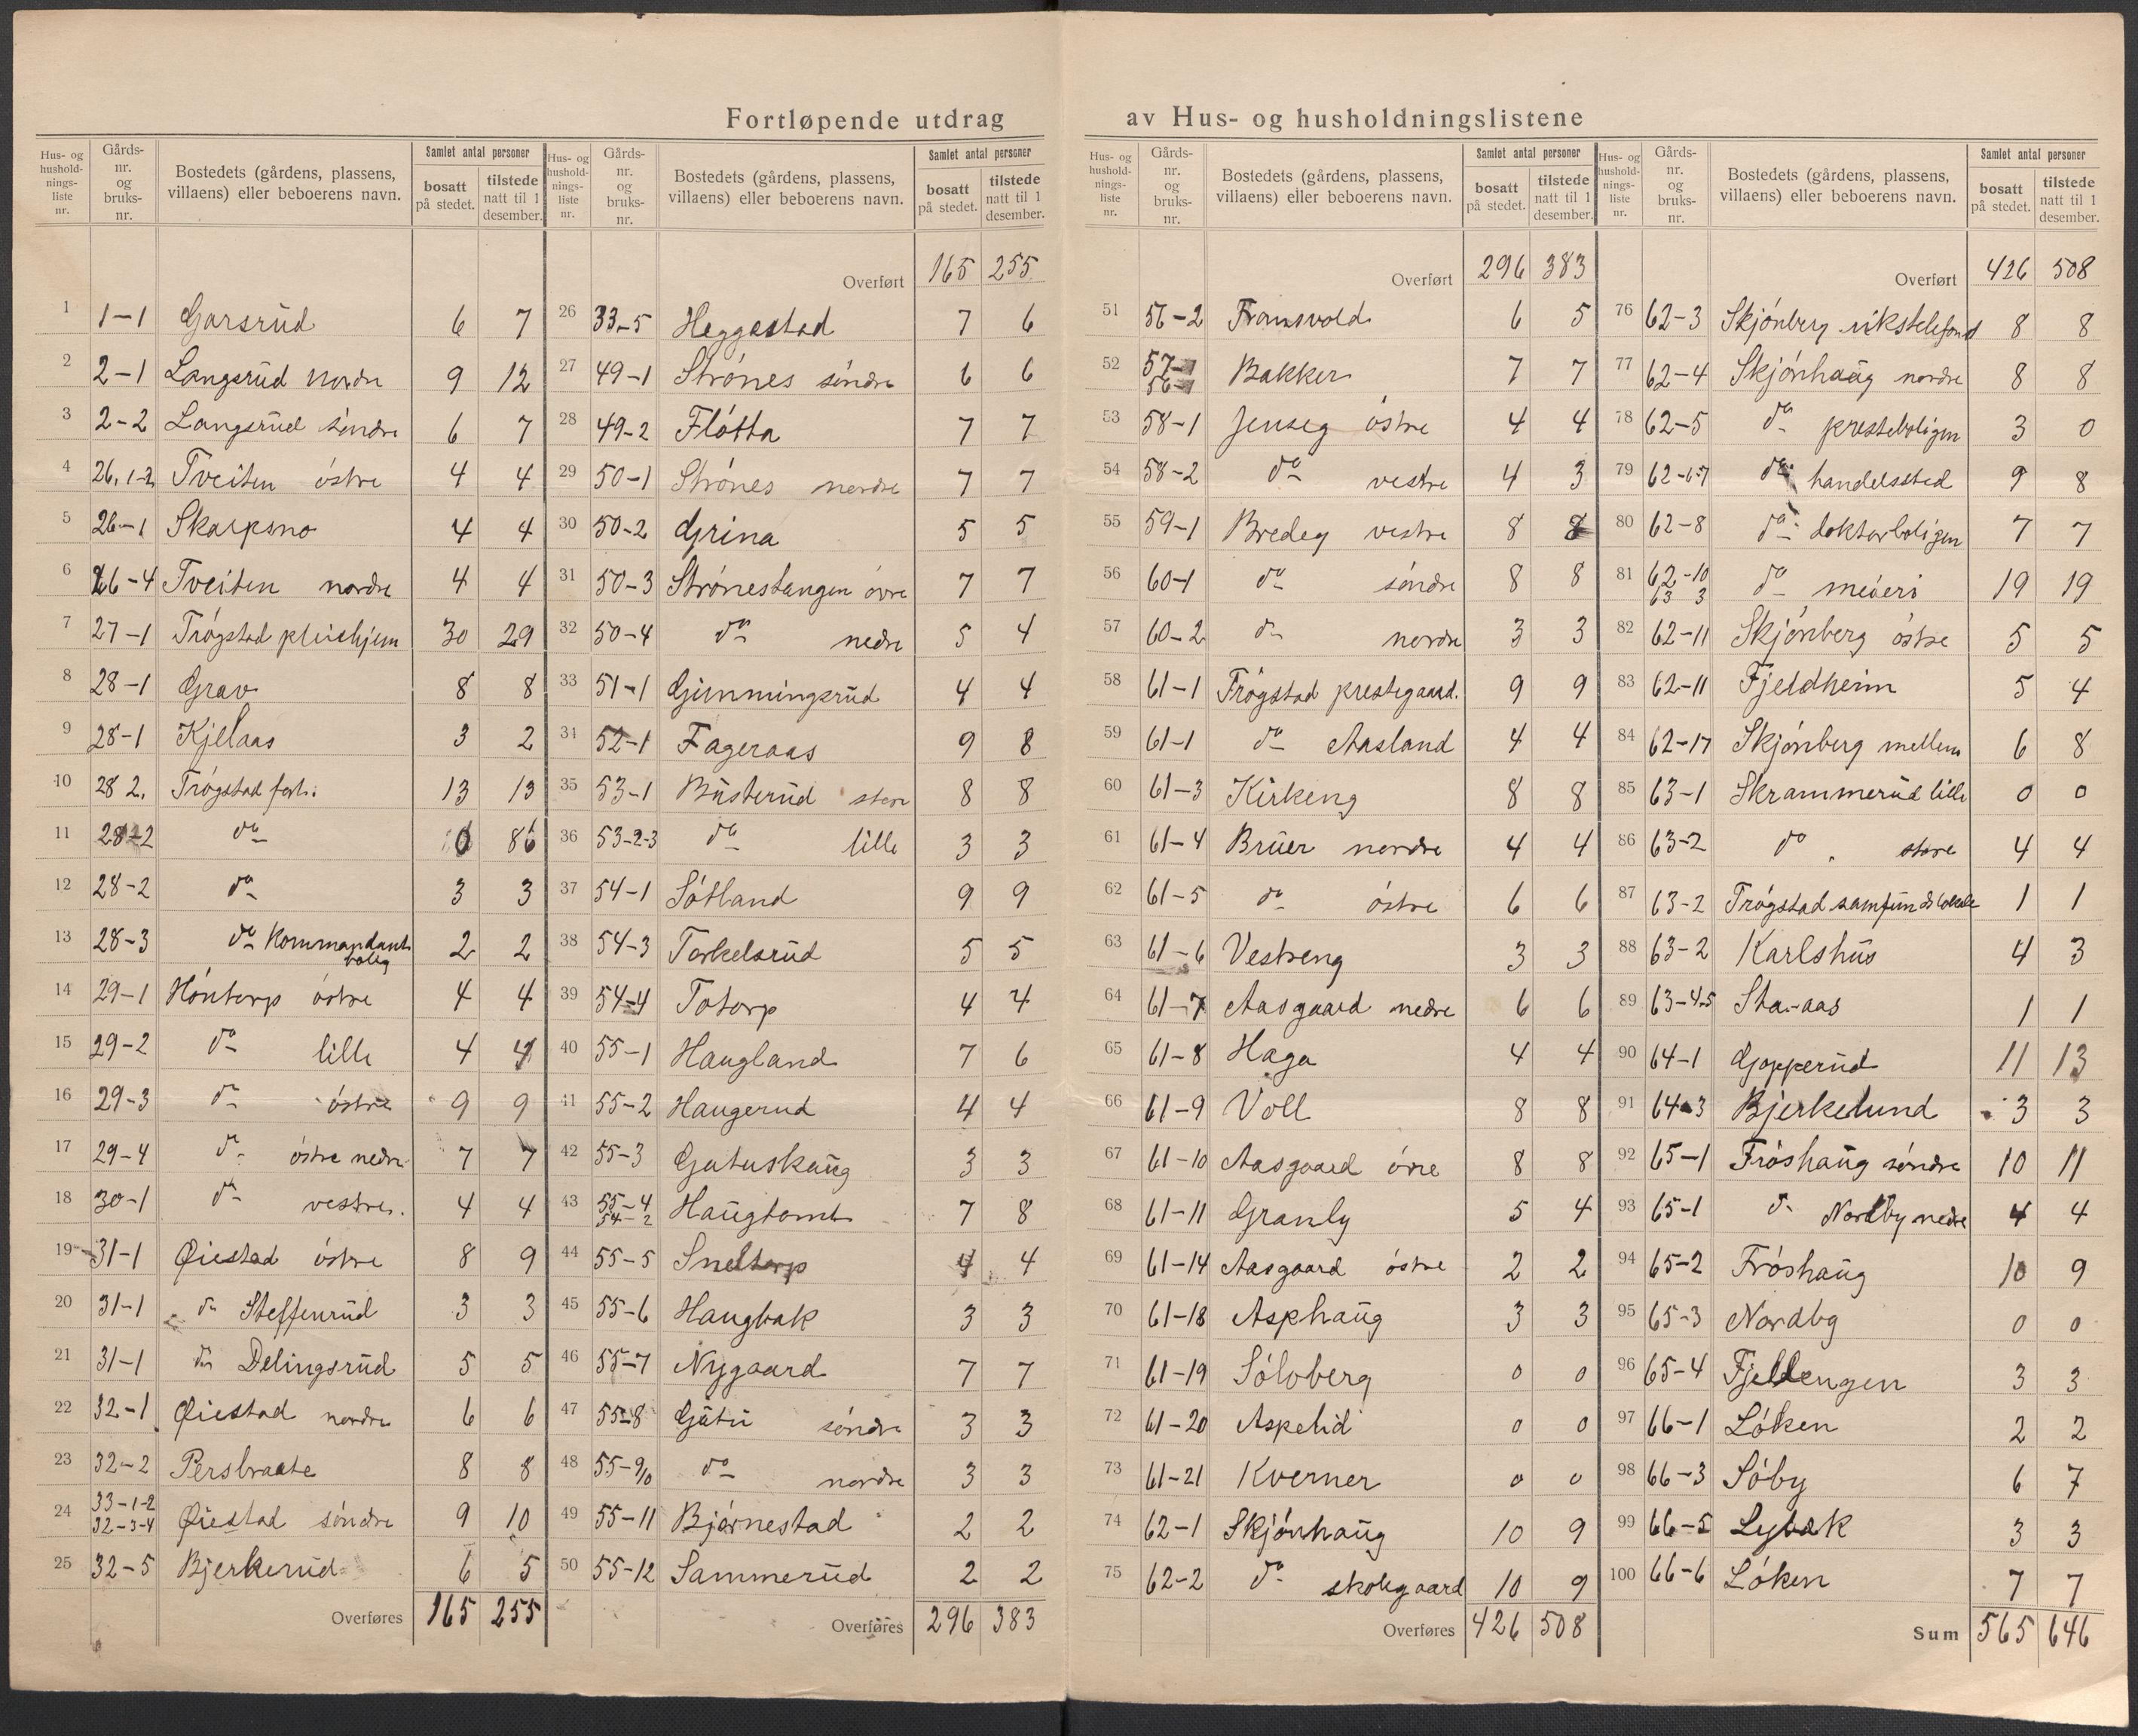 Fortløpende utdrag av Hus- og husholdningslistene
Hus- og hushold-nings-liste nr. | Gårds-nr. og bruks-nr. | Bostedets (gårdens, plassens, villaens) eller beboerens navn. | Samlet antal personer | bosatt på stedet. | tilstede natt til 1 desember.
1 1-1 Garsrud 6 7
2 2-1 Langsrud nordre 9 12
3 2-2 Langsrud søndre 6 7
4 26.1-2 Tveiten østre 4 4
5 26-1 Skarpsno 4 4
6 26-4 Tveiten nordre 4 4
7 27-1 Trøgstad pleiehjem 30 29
8 28-1 Grav 8 8
9 28-1 Kjelaas 3 2
10 28 2. Trøgstad fort. 13 13
11 28-2 do 0 86
12 28-2 do 3 3
13 28-3 do Kommandant bolig 2 2
14 29-1 Høntorp østre 4 4
15 29-2 do lille 4 4
16 29-3 do østre 9 9
17 29-4 do østre nedre 7 7
18 30-1 do vestre. 4 4
19 31-1 Øiestad østre 8 9
20 31-1 do Steffenrud 3 3
21 31-1 do Delingsrud 5 5
22 32-1 Øiestad nordre 6 6
23 32-2 Persbraate 8 8
24 33-1-2 32-3-4 Øiestad søndre 9 10
25 32-5 Bjerkerud 6 5
Overføres 165 255
Hus- og hushold-nings-liste nr. | Gårds-nr. og bruks-nr. | Bostedets (gårdens, plassens, villaens) eller beboerens navn. | Samlet antal personer | bosatt på stedet. | tilstede natt til 1 desember.
Overført 165 255
26 33-5 Heggestad 7 6
27 49-1 Strønes søndre 6 6
28 49-2 Fløtta 7 7
29 50-1 Strønes nordre 7 7
30 50-2 Grina 5 5
31 50-3 Strønestangen øvre 7 7
32 50-4 do nedre 5 4
33 51-1 Gimmingsrud 4 4
34 52-1 Fageraas 9 8
35 53-1 Busterud store 8 8
36 53-2-3 do lille 3 3
37 54-1 Søtland 9 9
38 54-3 Torkelsrud 5 5
39 54-4 Totorp 4 4
40 55-1 Haugland 7 6
41 55-2 Haugerud 4 4
42 55-3 Gutuskaug 3 3
43 55-4 54-2 Haugtomt 7 8
44 55-5 Sneltorp 4 4
45 55-6 Haugbak 3 3
46 55-7 Nygaard 7 7
47 55-8 Gutu søndre 3 3
48 55-9/10 do nordre 3 3
49 55-11 Bjørnestad 2 2
50 55-12 Sammerud 2 2
Overføres 296 383
Hus- og hushold-nings-liste nr. | Gårds-nr. og bruks-nr. | Bostedets (gårdens, plassens, villaens) eller beboerens navn. | Samlet antal personer | bosatt på stedet. | tilstede natt til 1 desember.
Overført 296 383
51 56-2 Framsvold 6 5
52 57-1 56-1 Bakker 7 7
53 58-1 Jenseg østre 4 4
54 58-2 do vestre 4 3
55 59-1 Bredeg vestre 8 8
56 60-1 do søndre 8 8
57 60-2 do nordre 3 3
58 61-1 Trøgstad prestegaard. 9 9
59 61-1 do Aasland 4 4
60 61-3 Kirkeng 8 8
61 61-4 Bruer nordre 4 4
62 61-5 do østre 6 6
63 61-6 Vestreng 3 3
64 61-7 Aasgaard nedre 6 6
65 61-8 Haga 4 4
66 61-9 Voll 8 8
67 61-10 Aasgaard øvre 8 8
68 61-11 Granly 5 4
69 61-14 Aasgaard østre 2 2
70 61-18 Asphaug 3 3
71 61-19 Sølvberg 0 0
72 61-20 Aspelid 0 0
73 61-21 Kverner 0 0
74 62-1 Skjønhaug 10 9
75 62-2 do skolegaard 10 9
Overføres 426 508
Hus- og hushold-nings-liste nr. | Gårds-nr. og bruks-nr. | Bostedets (gårdens, plassens, villaens) eller beboerens navn. | Samlet antal personer | bosatt på stedet. | tilstede natt til 1 desember.
Overført 426 508
76 62-3 Skjønberg rikstelefond 8 8
77 62-4 Skjønhaug nordre 8 8
78 62-5 do presteboligen 3 0
79 62-6-7 do handelssted 9 8
80 62-8 do doktorboligen 7 7
81 62-10 63 3 do meieri 19 19
82 62-11 Skjønberg østre 5 5
83 62-11 Fjeldheim 5 4
84 62-17 Skjønberg mellem 6 8
85 63-1 Skrammerud lille 0 0
86 63-2 do store 4 4
87 63-2 Trøgstad samfundslokale 1 1
88 63-2 Karlshus 4 3
89 63-4-5 Sta-aas 1 1
90 64-1 Gopperud 11 13
91 64-3 Bjerkelund 3 3
92 65-1 Frøshaug søndre 10 11
93 65-1 do Nordby nedre 4 4
94 65-2 Frøshaug 10 9
95 65-3 Nordby 0 0
96 65-4 Fjellengen 3 3
97 66-1 Løken 2 2
98 66-3 Søby 6 7
99 66-5 Lybæk 3 3
100 66-6 Løken 7 7
Sum 565 646